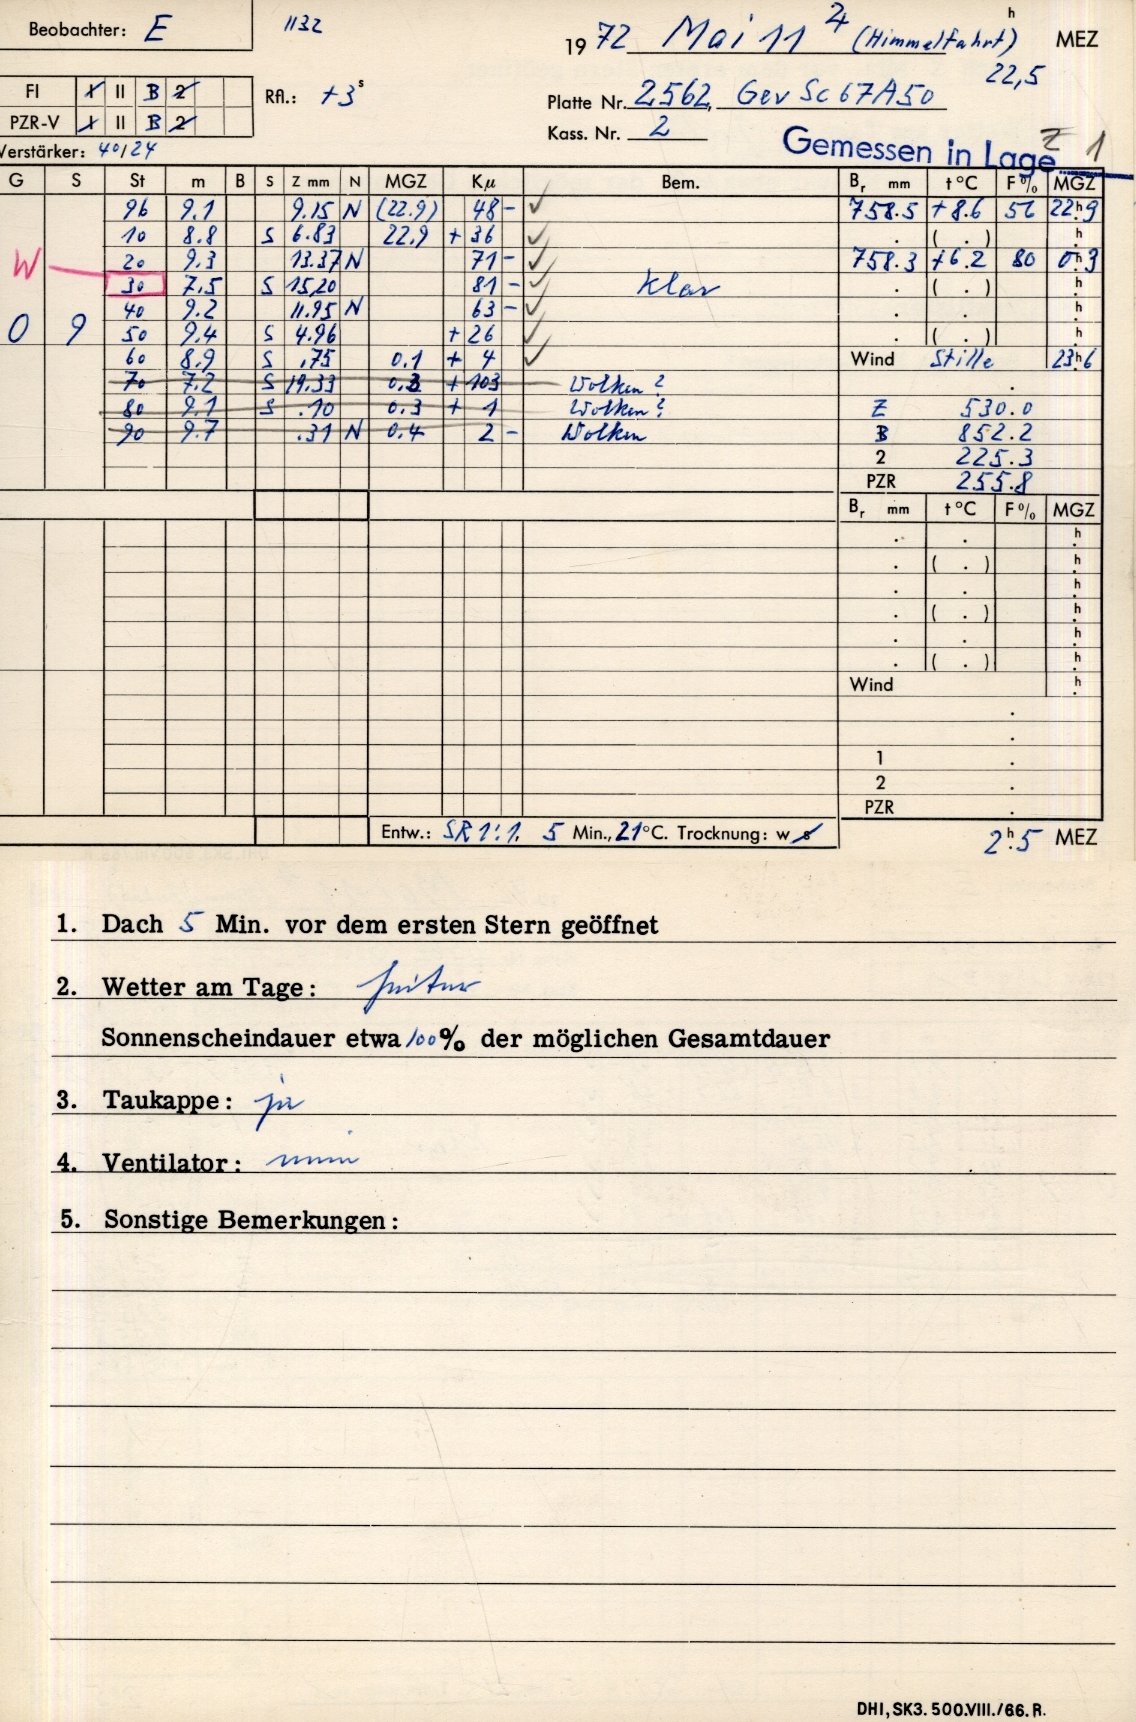 Beobachter: E 1132
19 72 Mai 11 4 (Himmelfahrt) h MEZ
22,5
FI 1 II B 2 Rfl.: +3 s
Platte Nr. 2562, Gev Sc 67A50
PZR-V 1 II B 2
Kass. Nr. 2
Verstärker: 40/24
Gemessen in Lage Z 1
G S St m B S Z mm N MGZ Kμ Bem. Br mm t °C F % MGZ
96 9.1 9.15 N (22.9) 48 - 758.5 +8.6 56 22h9
10 8.8 S 6.83 22.9 + 36 . ( . ) h
W 20 9.3 13.37 N 71 - 758.3 +6.2 80 0h3
30 7.5 S 15,20 81 - Klar . ( . ) h
40 9.2 11.95 N 63 - . . h
0 9 50 9.4 S 4.96 + 26 . ( . ) h
60 8.9 S .75 0.1 + 4 Wind Stille 23h6
70 7.2 S 19.33 0.3 + 103 Wolken ? .
80 9.1 S .10 0.3 + 1 Wolken ? Z 530.0
90 9.7 .31 N 0.4 2 - Wolken B 852.2
2 225.3
PZR 255.8
Br mm t °C F % MGZ
. . h
. ( . ) h
. . h
. ( . ) h
. . h
. ( . ) h
Wind h
.
.
1 .
2 .
PZR .
Entw.: SR 1:1. 5 Min., 21 °C. Trocknung: w s
2h.5 MEZ
1. Dach 5 Min. vor dem ersten Stern geöffnet
2. Wetter am Tage: heiter
Sonnenscheindauer etwa 100 % der möglichen Gesamtdauer
3. Taukappe: ja
4. Ventilator: nein
5. Sonstige Bemerkungen:
DHI, SK3. 500.VIII./66. R.